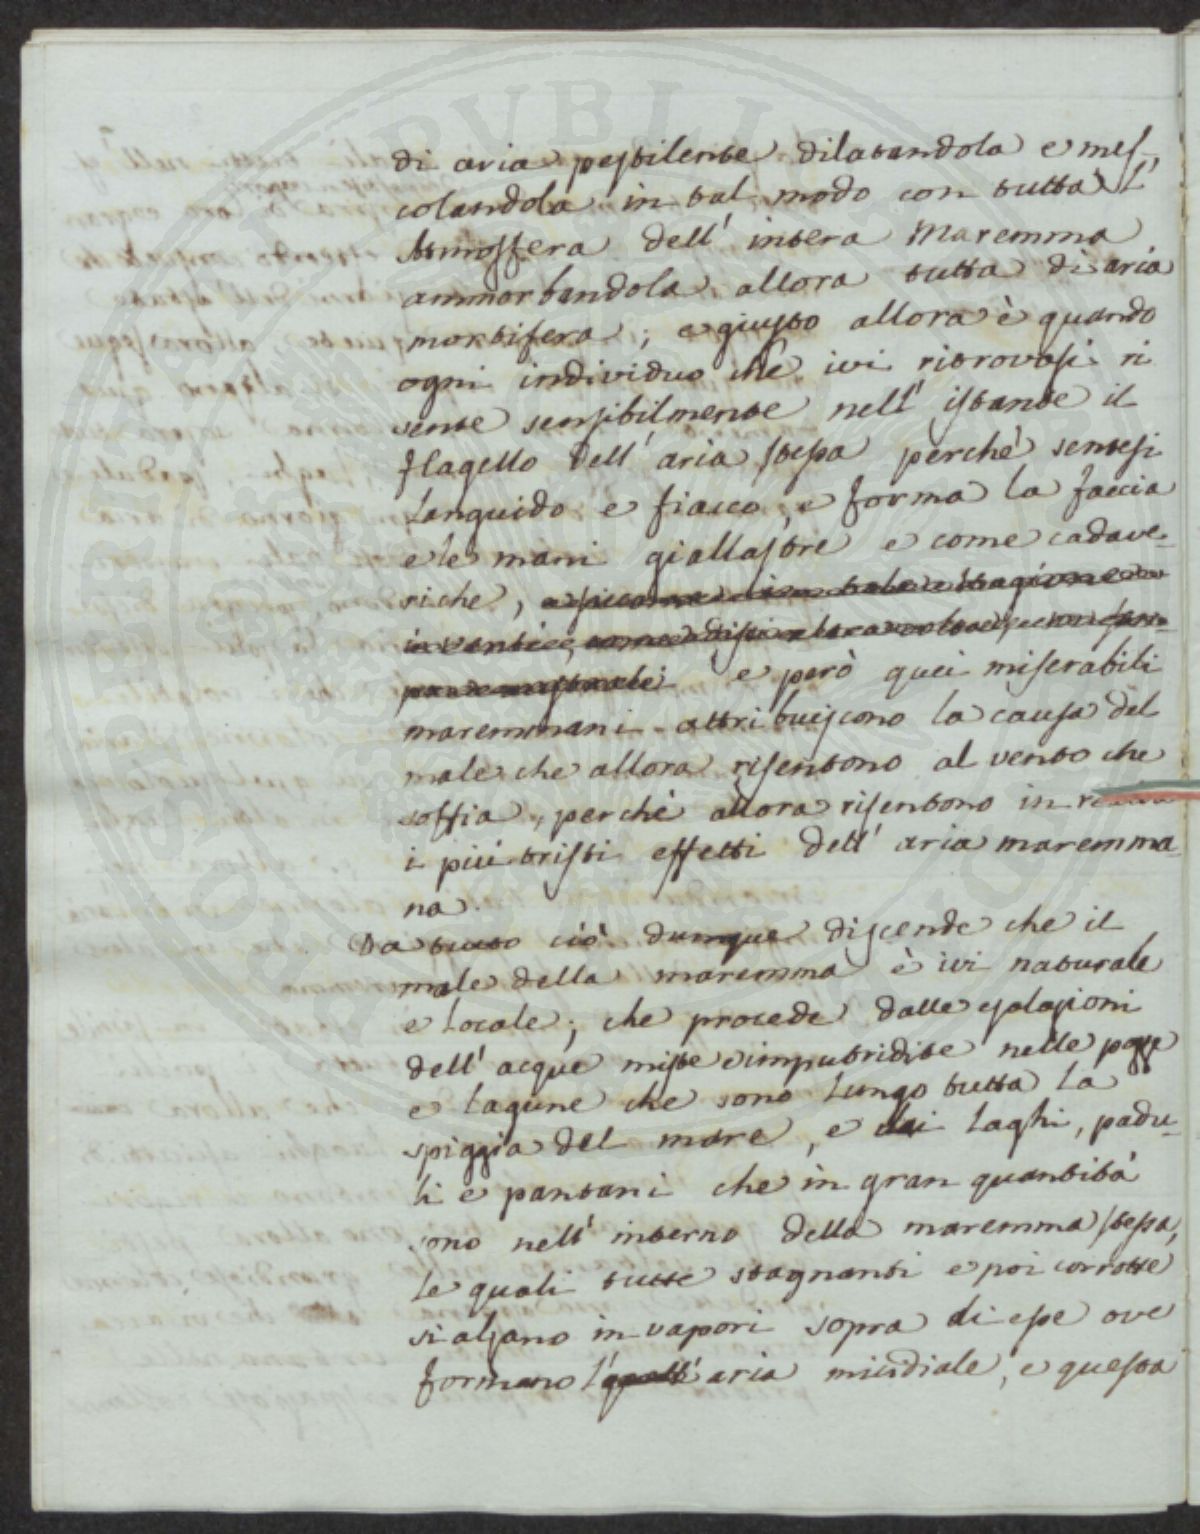 di aria pestilente dilatandola e mes,
colandola in tal modo con tutta l'
Atmosfera dell' intera Maremma
ammorbandola allora tutta di aria
morbifera; e giusto allora è quando
ogni individuo che ivi ritrovasi ri
sente sensibilmente nell' istante il
flagello dell' aria stessa perchè sentesi
languido e fiacco, e forma la faccia
e le mani giallastre e come cadave-
riche,
e però quei miserabili
maremmani attribuiscono la causa del
male che allora risentono al vento che
soffia, perchè allora risentono in
i più tristi effetti dell' aria maremma
na.
Da tutto ciò dunque discende che il
male della maremma è ivi naturale
e locale; che procede dalle esalazioni
dell' acque miste e imputridite nelle pozze
e lagune che sono lungo tutta la
spiggia del mare, e dai laghi, padu-
li e pantani che in gran quantità
sono nell' interno della maremma stessa,
le quali tutte stagnanti e poi corrotte
si alzano in vapori sopra di esse ove
formano l' aria micidiale, e questa